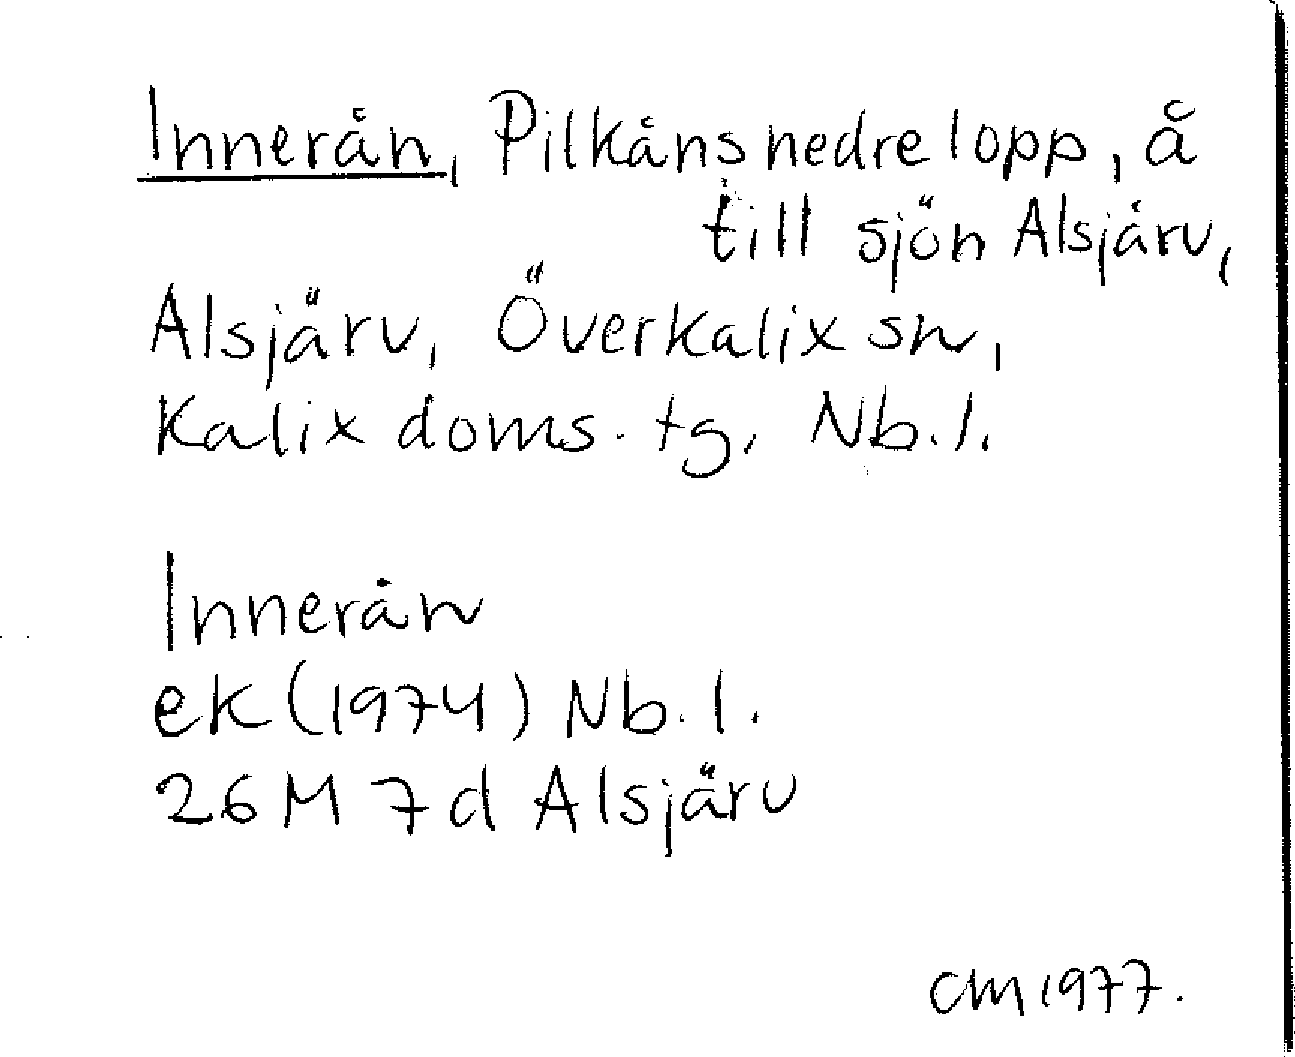 Innerån, Pilkåns nedre lopp, å
till sjön Alsjärv,
Alsjärv, Överkalix sn,
Kalix doms. tg, Nb. l.
Innerån
ek (1974) Nb. l.
26 M 7d Alsjärv
CM 1977.